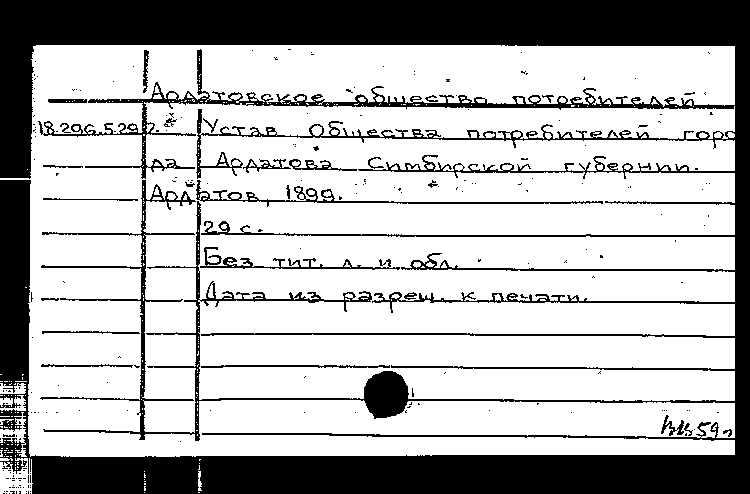 Ардатовское общество потребителей
18.296.5.297. Устав Общества потребителей горо
да Ардатова Симбирской губернии.
Ардатов, 1899.
29 с.
Без тит. л. и обл.
Дата из разреш. к печати.
59